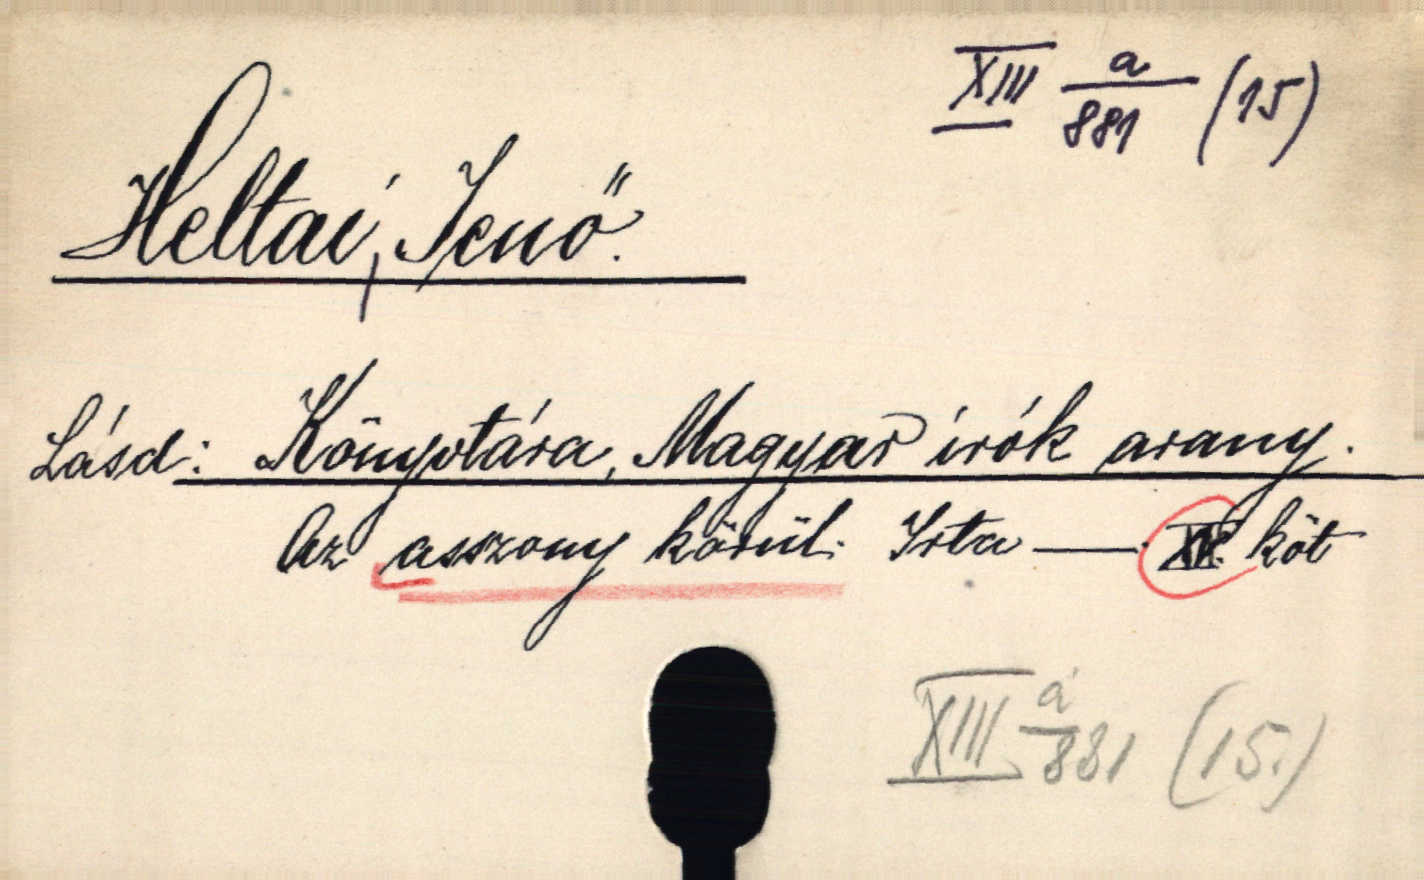 XIII a/881 (15)
Heltai, Jenő.
Lásd: Könyvtára, Magyar irók arany.
Az asszony körül. Irta — köt
XIII a/881 (15.)